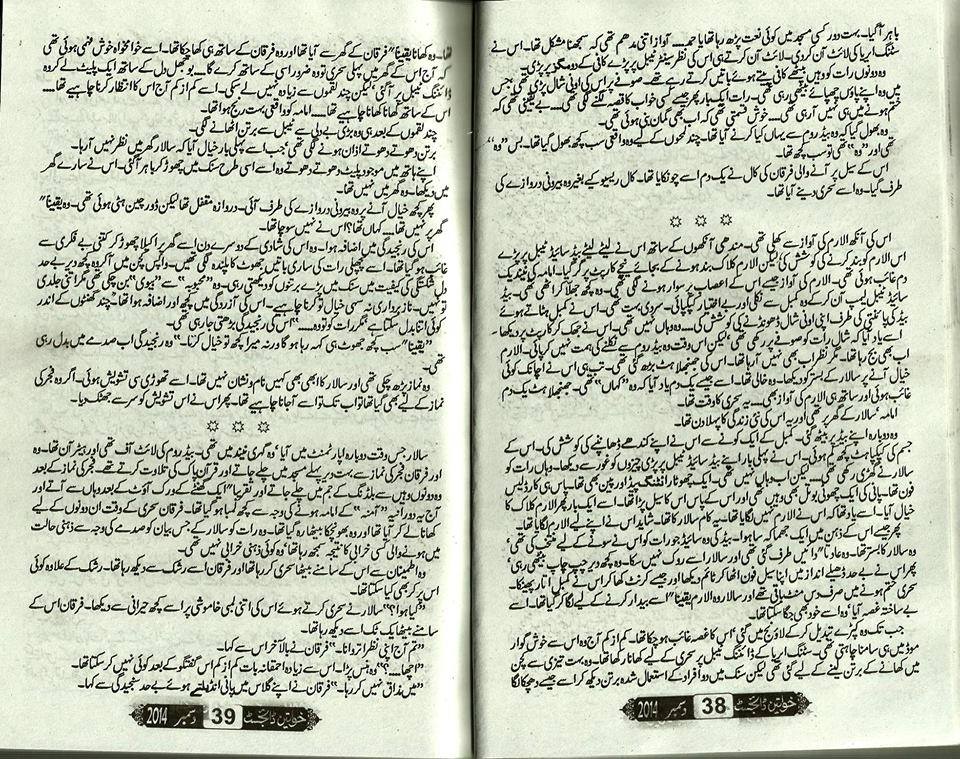 باہر آگیا۔ بہت دور کسی مسجد میں کوئی نعت پڑھ رہا تھا یا حمد.... آواز اتنی مدھم تھی کہ سمجھنا مشکل تھا۔ اس نے
سٹنگ ایریا کی لائٹ آن کر دی۔ لائٹ آن کرتے ہی اس کی نظر سینٹر ٹیبل پر پڑے کافی کے دو مگز پر پڑی۔
وہ دونوں رات کو وہیں بیٹھے کافی پیتے ہوئے باتیں کرتے رہے تھے۔ صوفے پر اس کی اونی شال پڑی تھی جس
میں وہ اپنے پاؤں چھپائے بیٹھی رہی تھی۔ رات ایک بار پھر جیسے کسی خواب کا قصہ لگنے لگی تھی.... بے یقینی تھی کہ
ختم ہونے میں ہی نہیں آ رہی تھی.... خوش قسمتی تھی کہ اب بھی گمان بنی ہوئی تھی۔
وہ بھول گیا کہ وہ بیڈ روم سے یہاں کیا کرنے آیا تھا۔ چند لمحوں کے لیے وہ واقعی سب کچھ بھول گیا تھا۔ بس "وہ"
تھی اور "وہ" تھی تو سب کچھ تھا۔
اس کے سیل پر آنے والی فرقان کی کال نے یک دم اسے چونکایا تھا۔ کال ریسیو کیے بغیر وہ بیرونی دروازے کی
طرف گیا۔ وہ اسے سحری دینے آیا تھا۔
☼ ☼ ☼
اس کی آنکھ الارم کی آواز سے کھلی تھی۔ مندھی آنکھوں کے ساتھ اس نے لیٹے لیٹے بیڈ سائیڈ ٹیبل پر پڑے
اس الارم کو بند کرنے کی کوشش کی لیکن الارم کلاک بند ہونے کے بجائے نیچے کارپٹ پر گر گیا۔ امامہ کی نیند یک
دم غائب ہوئی تھی۔ الارم کی آواز جیسے اس کے اعصاب پر سوار ہونے لگی تھی۔ وہ کچھ جھلا کر اٹھی تھی۔ بیڈ
سائیڈ ٹیبل لیمپ آن کر کے وہ کمبل سے نکلی اور بے اختیار کپکپائی۔ سردی بہت تھی۔ اس نے کمبل ہٹاتے ہوئے
بیڈ کی پائنتی کی طرف اپنی اونی شال ڈھونڈنے کی کوشش کی.... وہ وہاں نہیں تھی۔ اس نے جھک کر کارپٹ پر دیکھا۔
اسے یاد آیا کہ شال رات کو صوفے پر رکھی تھی، لیکن اس وقت وہ بیڈ روم سے نکلنے کی ہمت نہیں کر پائی۔ الارم
اب بھی بج رہا تھا۔ مگر نظر اب بھی نہیں آ رہا تھا۔ اس کی جھنجلاہٹ بڑھ گئی تھی۔ تب ہی اس نے اچانک کوئی
خیال آنے پر سالار کے بستر کو دیکھا۔ وہ خالی تھا۔ اسے جیسے یک دم یاد آیا کہ وہ "کہاں" تھی۔ جھنجلاہٹ یک دم
غائب ہوئی اور ساتھ ہی الارم کی آواز بھی.... یہ سحری کا وقت تھا۔
امامہ، سالار کے گھر پر تھی اور یہ اس کی نئی زندگی کا پہلا دن تھا۔
وہ دوبارہ اپنے بیڈ پر بیٹھ گئی۔ کمبل کے ایک کونے سے اس نے اپنے کندھے ڈھانپنے کی کوشش کی۔ اس کے
جسم کی کپکپاہٹ کچھ کم ہوئی۔ اس نے پہلی بار اپنے بیڈ سائیڈ ٹیبل پر پڑی چیزوں کو غور سے دیکھا۔ وہاں رات کو
سالار نے گھڑی رکھی تھی.... لیکن اب وہاں نہیں تھی۔ ایک چھوٹا رائٹنگ پیڈ اور پین بھی تھا۔ پاس ہی کارڈلیس
فون تھا۔ پانی کی ایک چھوٹی بوتل بھی وہیں تھی اور اس کے پاس اس کا سیل پڑا تھا۔ اسے ایک بار پھر الارم کلاک کا
خیال آیا۔ اسے یاد تھا کہ اس نے الارم نہیں لگایا تھا۔ یہ کام سالار کا تھا۔ شاید اس نے اپنے لیے الارم لگایا تھا۔
پھر جیسے اس کے ذہن میں ایک جھماکہ سا ہوا۔ بیڈ کی وہ سائیڈ جو رات کو اس نے سونے کے لیے منتخب کی تھی،
وہ سالار کا بستر تھا۔ وہ عادتاً دائیں طرف گئی تھی اور سالار اسے روک نہیں سکا۔ وہ کچھ دیر چپ چاپ بیٹھی رہی،
پھر اس نے بے حد ڈھیلے انداز میں اپنا سیل فون اٹھا کر ٹائم دیکھا اور جیسے کرنٹ کھا کر اس نے کمبل اتار پھینکا۔
سحری ختم ہونے میں صرف دس منٹ باقی تھے اور سالار وہ الارم یقیناً اسے بیدار کرنے کے لیے لگا کر گیا تھا۔ اسے
بے ساختہ غصہ آیا، وہ اسے خود بھی جگا سکتا تھا۔
جب تک وہ کپڑے تبدیل کر کے لاؤنج میں گئی، اس کا غصہ غائب ہو چکا تھا۔ کم از کم آج وہ اس سے خوش گوار
موڈ میں ہی سامنا چاہتی تھی۔ سٹنگ ایریا کے ڈائننگ ٹیبل پر سحری کے لیے کھانا رکھا تھا۔ وہ بہت تیزی سے کچن
میں کھانے کے برتن لینے کے لیے گئی تھی لیکن سنک میں دو افراد کے استعمال شدہ برتن دیکھ کر اسے جیسے دھچکا لگا
خواتین ڈائجسٹ 38 دسمبر 2014
تھا۔ وہ کھانا یقیناً فرقان کے گھر سے آیا تھا اور وہ فرقان کے ساتھ ہی کھا چکا تھا۔ اسے خوامخواہ خوش فہمی ہوئی تھی
کہ آج اس کے گھر میں پہلی سحری تو وہ ضرور اسی کے ساتھ کرے گا.... بوجھل دل کے ساتھ ایک پلیٹ لے کر وہ
ڈائننگ ٹیبل پر آ گئی، لیکن چند لقموں سے زیادہ نہیں لے سکی۔ اسے کم از کم آج اس کا انتظار کرنا چاہیے تھا....
اس کے ساتھ کھانا کھانا چاہیے تھا.... امامہ کو واقعی بہت رنج ہوا تھا۔
چند لقموں کے بعد ہی وہ بڑی بے دلی سے ٹیبل سے برتن اٹھانے لگی۔
برتن دھوتے دھوتے اذان ہونے لگی تھی، جب اسے پہلی بار خیال آیا کہ سالار گھر میں نظر نہیں آ رہا۔
اپنے ہاتھ میں موجود پلیٹ دھوتے دھوتے وہ اسے اسی طرح سنک میں چھوڑ کر باہر آ گئی۔ اس نے سارے گھر
میں دیکھا۔ وہ گھر میں نہیں تھا۔
پھر کچھ خیال آنے پر وہ بیرونی دروازے کی طرف آئی۔ دروازہ مقفل تھا لیکن ڈور چین ہٹی ہوئی تھی۔ وہ یقیناً
گھر پر نہیں تھا.... کہاں تھا؟ اس نے نہیں سوچا تھا۔
اس کی رنجیدگی میں اضافہ ہوا۔ وہ اس کی شادی کے دوسرے دن اسے گھر پر اکیلا چھوڑ کر کتنی بے فکری سے
غائب ہو گیا تھا۔ اسے پچھلی رات کی ساری باتیں جھوٹ کا پلندہ لگی تھیں۔ واپس کچن میں آ کر وہ کچھ دیر بے حد
دل شکستگی کی کیفیت میں سنک میں پڑے برتنوں کو دیکھتی رہی۔ وہ "محبوبہ" سے "بیوی" بن چکی تھی مگر اتنی جلدی
تو نہیں۔ ناز برداری نہ سہی خیال تو کرنا چاہیے۔ اس کی آزردگی میں کچھ اور اضافہ ہوا تھا۔ "چند گھنٹوں کے اندر
کوئی اتنا بدل سکتا ہے، مگر رات کو تو وہ...." اس کی رنجیدگی بڑھتی جا رہی تھی۔
"یقیناً سب کچھ جھوٹ ہی کہہ رہا ہو گا ورنہ میرا کچھ تو خیال کرتا۔" وہ رنجیدگی اب صدمے میں بدل رہی
تھی۔
وہ نماز پڑھ چکی تھی اور سالار کا ابھی بھی کہیں نام و نشان نہیں تھا۔ اسے تھوڑی سی تشویش ہوئی۔ اگر وہ فجر کی
نماز کے لیے بھی گیا تھا تو اب تک تو اسے آ جانا چاہیے تھا۔ پھر اس نے اس تشویش کو سر سے جھٹک دیا۔
☼ ☼ ☼
سالار جس وقت دوبارہ اپارٹمنٹ میں آیا، وہ گہری نیند میں تھی۔ بیڈ روم کی لائٹ آف تھی اور ہیٹر آن تھا۔ وہ
اور فرقان فجر کی نماز سے بہت دیر پہلے مسجد میں چلے جاتے اور قرآن پاک کی تلاوت کرتے تھے۔ فجر کی نماز کے بعد
وہ دونوں وہیں سے بلڈنگ کے جم میں چلے جاتے اور تقریباً ایک گھنٹے کے ورک آؤٹ کے بعد وہاں سے آتے اور
آج یہ دورانیہ "آمنہ" کے امامہ ہونے کی وجہ سے کچھ لمبا ہو گیا تھا۔ فرقان سحری کے وقت ان دونوں کے لیے
کھانا لے کر آیا تھا اور وہ بھونچکا بیٹھا رہ گیا تھا۔ وہ رات کو سالار کے جس بیان کو صدمے کی وجہ سے ذہنی حالت
میں ہونے والی کسی خرابی کا نتیجہ سمجھ رہا تھا، وہ کوئی ذہنی خرابی نہیں تھی۔
وہ اطمینان سے اس کے سامنے بیٹھا سحری کر رہا تھا اور فرقان اسے رشک سے دیکھ رہا تھا۔ رشک کے علاوہ کوئی
اس پر کر بھی کیا سکتا تھا۔
"کیا ہوا؟" سالار نے سحری کرتے ہوئے اس کی اتنی لمبی خاموشی پر اسے کچھ حیرانی سے دیکھا۔ فرقان اس کے
سامنے بیٹھا یک ٹک اسے دیکھ رہا تھا۔
"تم آج اپنی نظر اتروانا۔" فرقان نے بالآخر اس سے کہا۔
"اچھا....؟" وہ ہنس پڑا۔ اس سے زیادہ احمقانہ بات کم از کم اس گفتگو کے بعد کوئی نہیں کر سکتا تھا۔
"میں مذاق نہیں کر رہا۔" فرقان نے اپنے گلاس میں پانی انڈیلتے ہوئے بے حد سنجیدگی سے کہا۔
خواتین ڈائجسٹ 39 دسمبر 2014